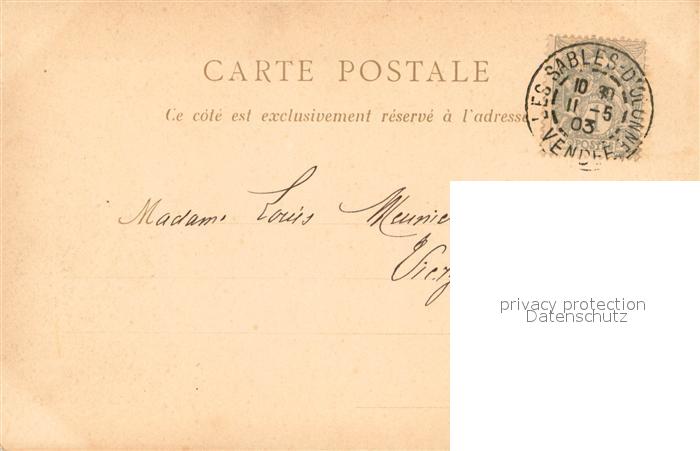 CARTE POSTALE
Ce côté est exclusivement réservé à l'adresse
LES SABLES-D'OLONNE
10
11 -5
03
VENDEE
POSTES
Madame Louis Meunie
Vierz
privacy protection
Datenschutz